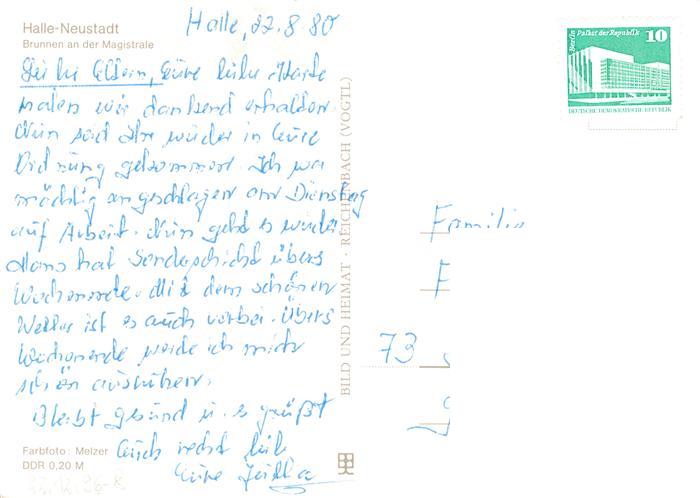 Halle-Neustadt
Brunnen an der Magistrale
Halle, 22.8.80
Ihr lb. Eltern, Eure liebe Karte
haben wir dankend erhalten.
Nun seid Ihr wieder in Eure
Ordnung gekommen. Ich war
mächtig angeschlagen am Dienstag
auf Arbeit. Nun geht es wieder.
Hans hat Sonderschicht übers
Wochenende. Mit dem schönen
Wetter ist es auch vorbei. Übers
Wochenende werde ich mich
schön ausruhen.
Bleibt gesund u. es grüßt
Euch recht lieb
Eure
Farbfoto: Melzer
DDR 0,20 M
BILD UND HEIMAT · REICHENBACH (VOGTL)
Berlin Palast der Republik
10
DEUTSCHE DEMOKRATISCHE REPUBLIK
Familie
F
73